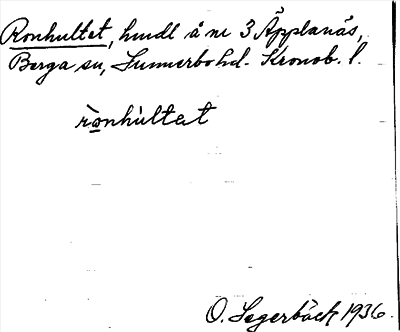 Ronhultet, hmdl å nr 3 Äpplanäs,
Berga sn, Sunnerbo hd. Kronob. l.
rònhùltet
O. Segerbäck 1936.